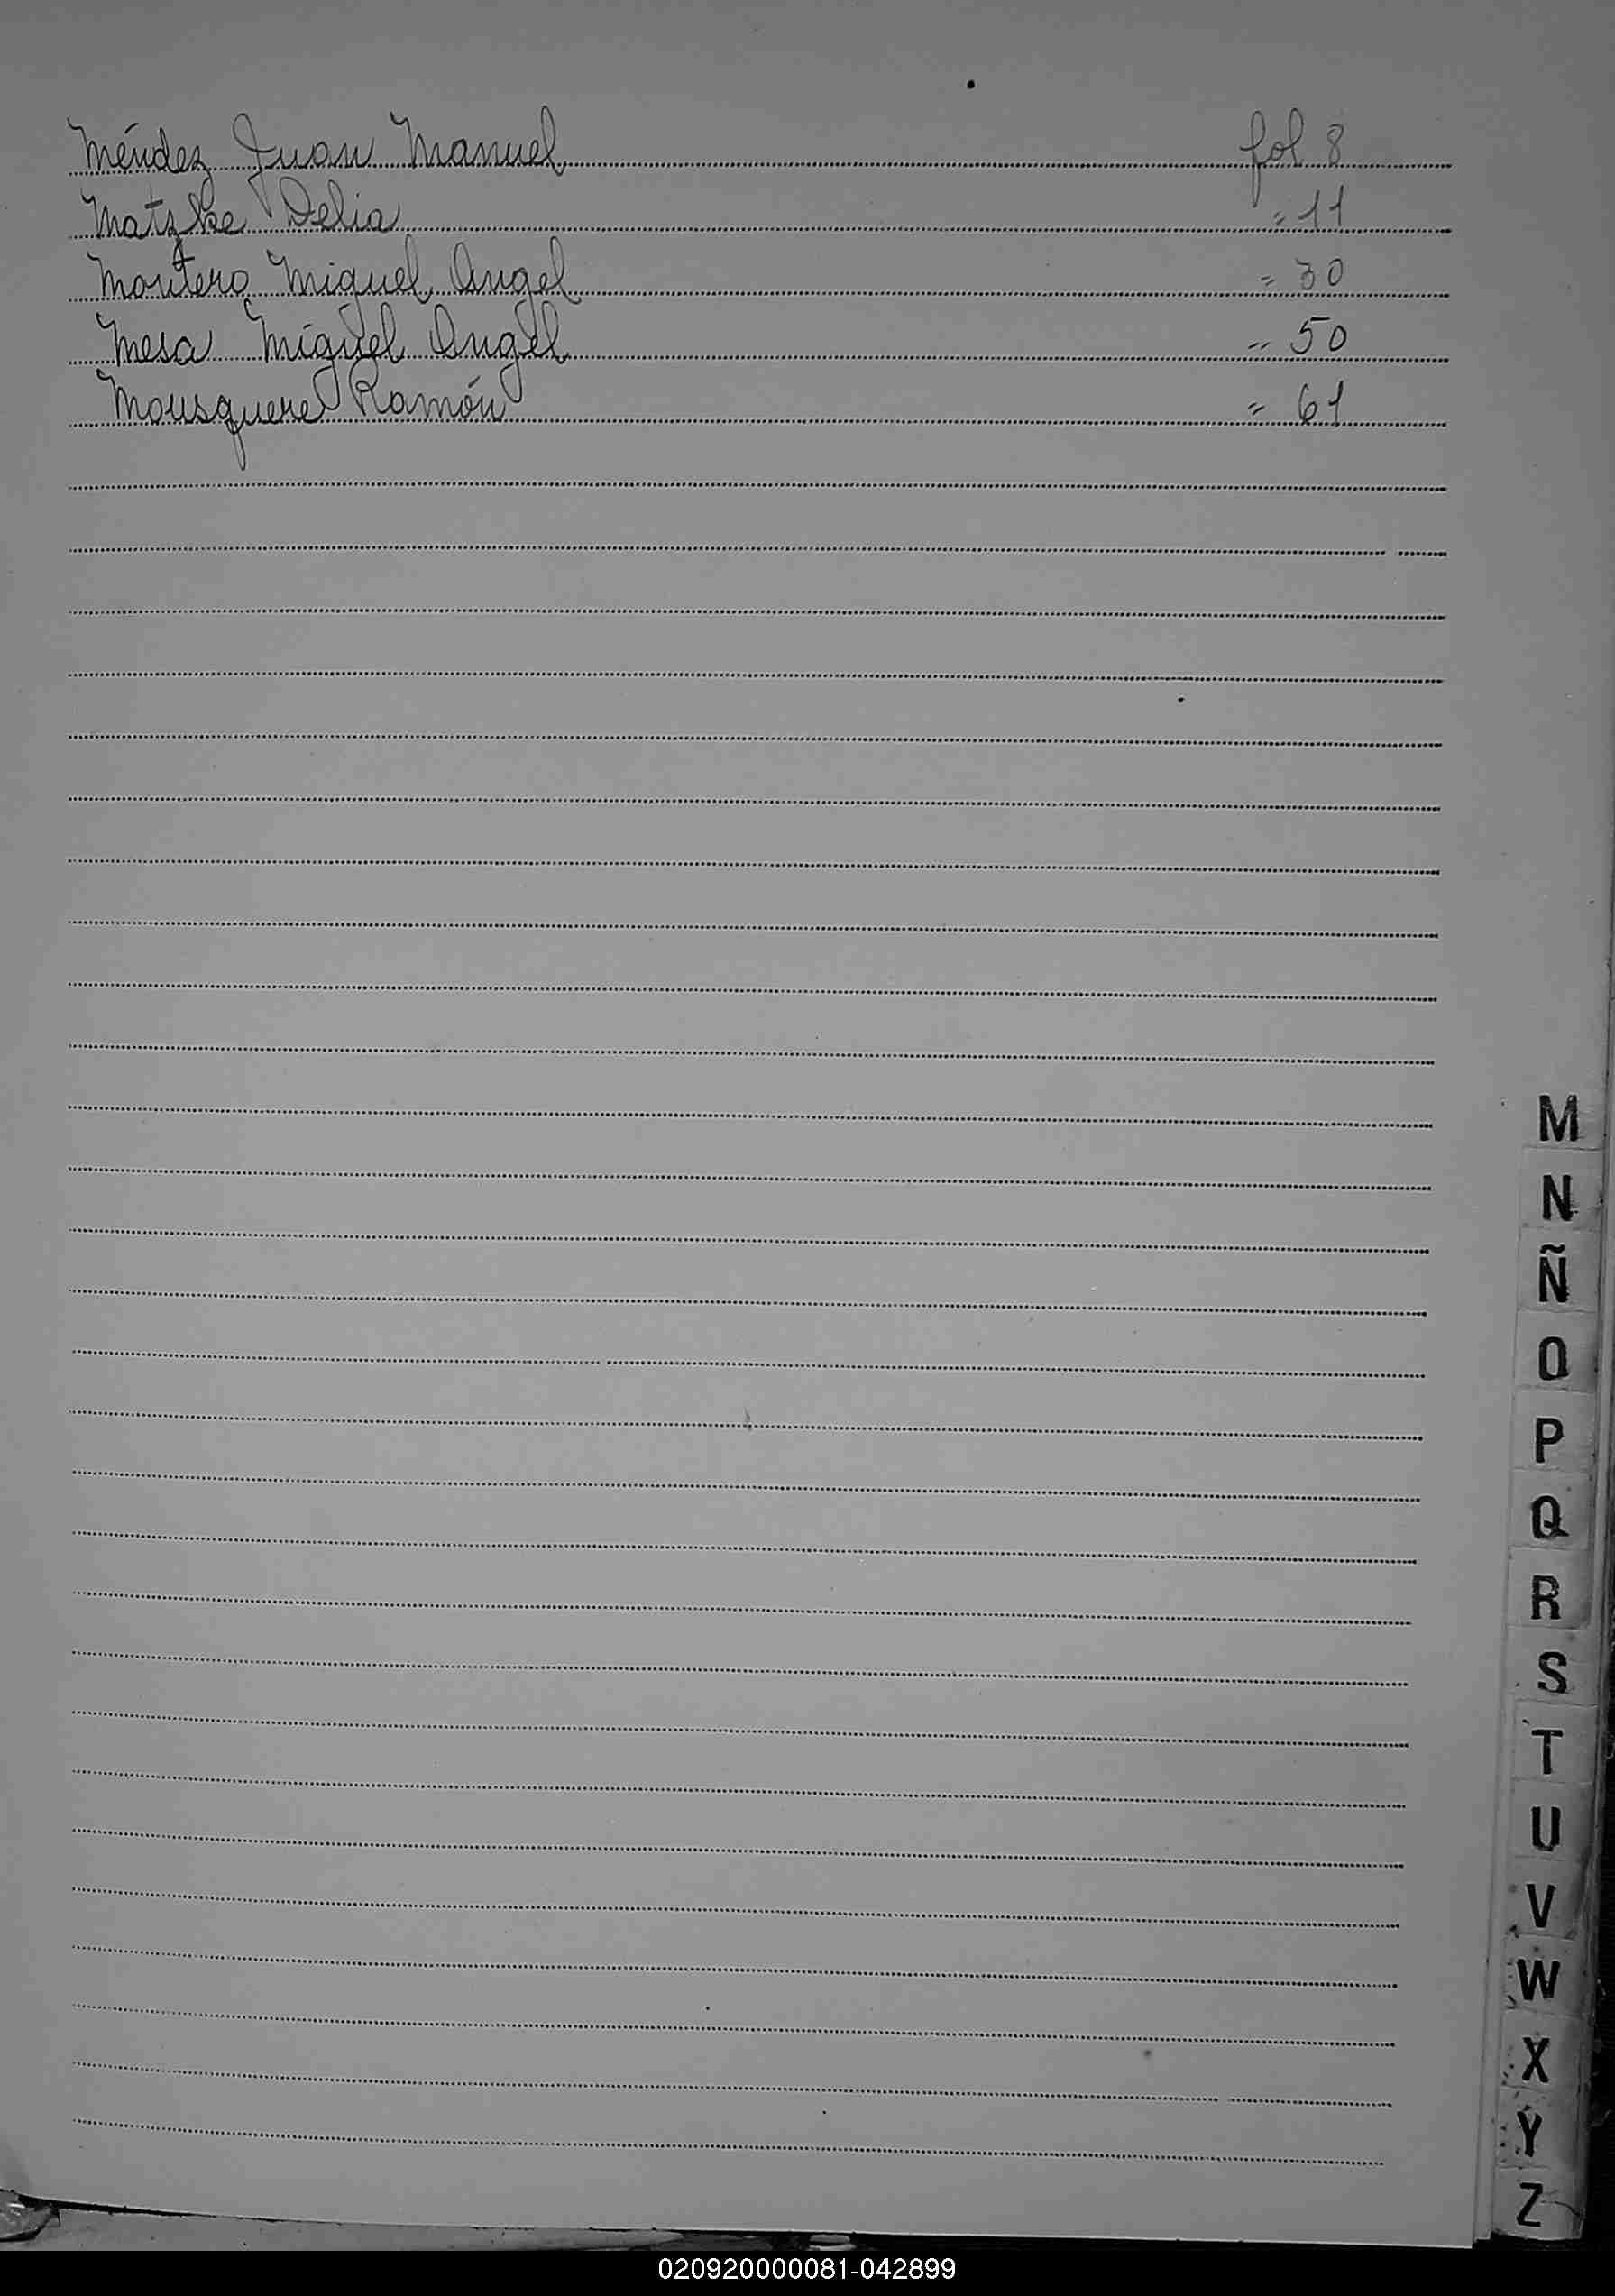 Méndez Juan Manuel fol 8
Matzke Delia = 11
Montero Miguel Angel = 30
Mesa Miguel Angel = 50
Mousquere Ramón = 61
M
N
Ñ
O
P
Q
R
S
T
U
V
W
X
Y
Z
020920000081-042899